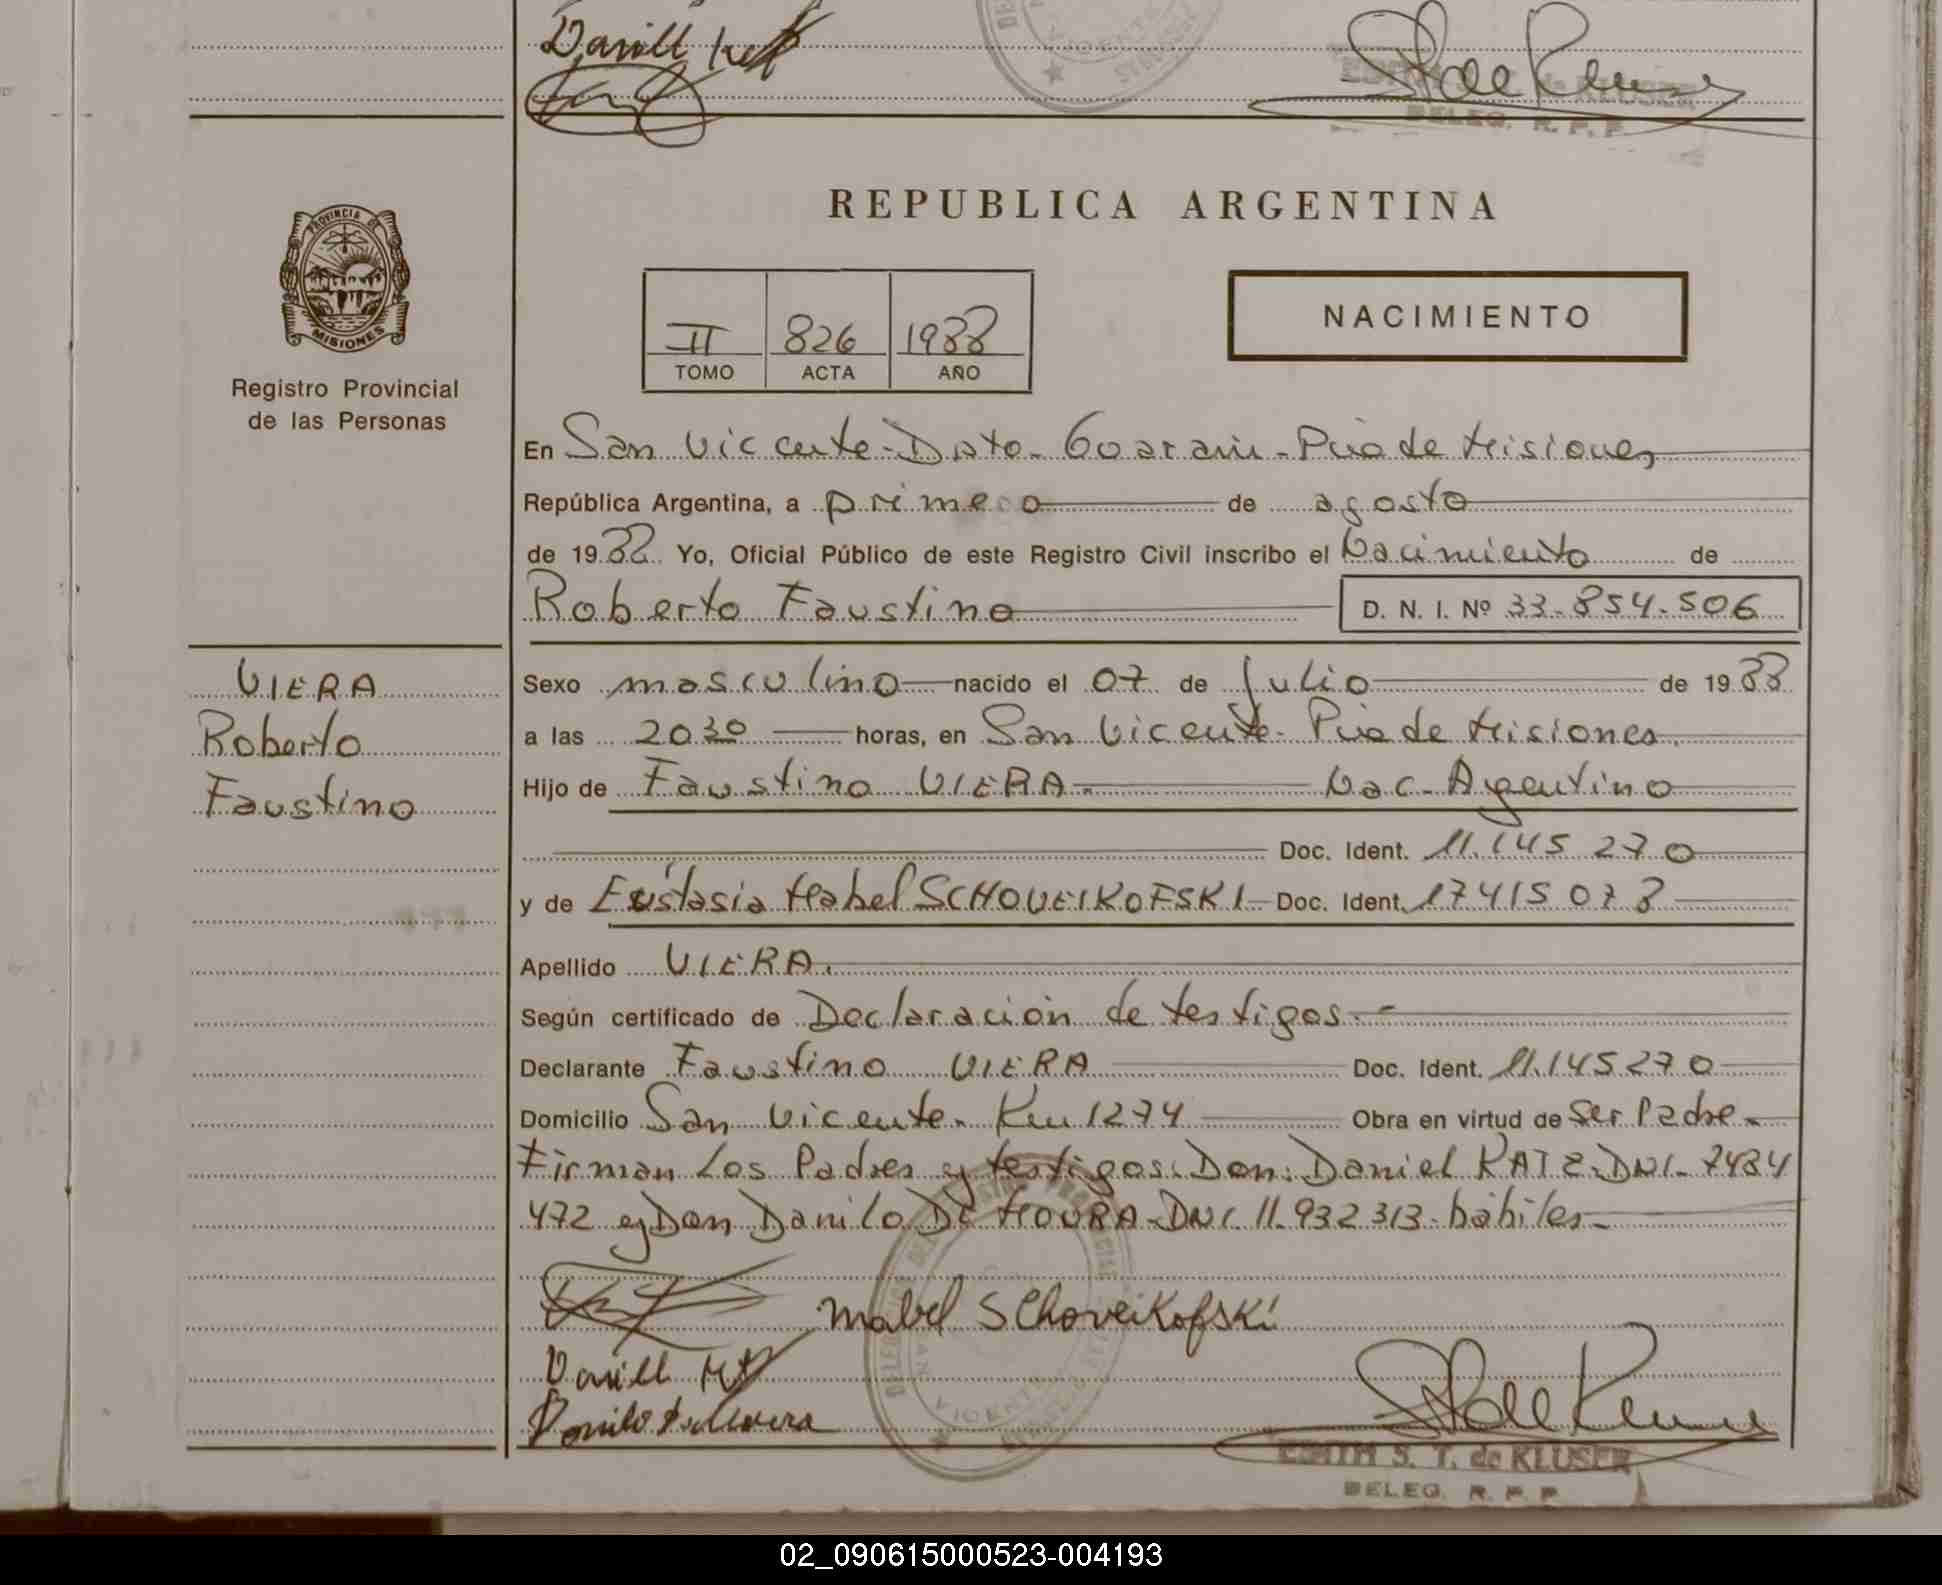 REPUBLICA ARGENTINA
PROVINCIA DE
MISIONES
Registro Provincial
de las Personas
II 826 1988
TOMO ACTA AÑO
NACIMIENTO
En San Vicente - Dpto. Guarani - Pcia de Misiones
República Argentina, a primero de agosto
de 1988 Yo, Oficial Público de este Registro Civil inscribo el Nacimiento de
Roberto Faustino D. N. I. Nº 33.854.506
VIERA
Roberto
Faustino
Sexo masculino nacido el 07 de Julio de 1988
a las 20 30 horas, en San Vicente - Pcia de Misiones.
Hijo de Faustino VIERA. Nac. Argentino
Doc. Ident. 11.145 270
y de Eustasia Mabel SCHOVEIKOFSKI Doc. Ident. 17415 078
Apellido VIERA.
Según certificado de Declaración de testigos.-
Declarante Faustino VIERA Doc. Ident. 11.145270
Domicilio San Vicente - Km 1274 Obra en virtud de ser Padre -
Firman Los Padres y testigos: Don: Daniel KATZ - DNI - 7484
472 y Don Danilo DE MOURA - DNI. 11.932 313 - hábiles -
Mabel SChoveikofski
EDITH S. T. de KLUSER
DELEG. R. P. P.
02_090615000523-004193